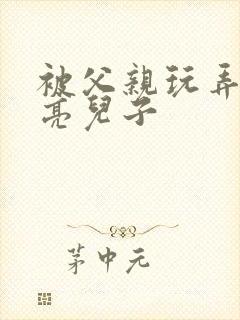 被父親玩弄
亮兒子
茅中元